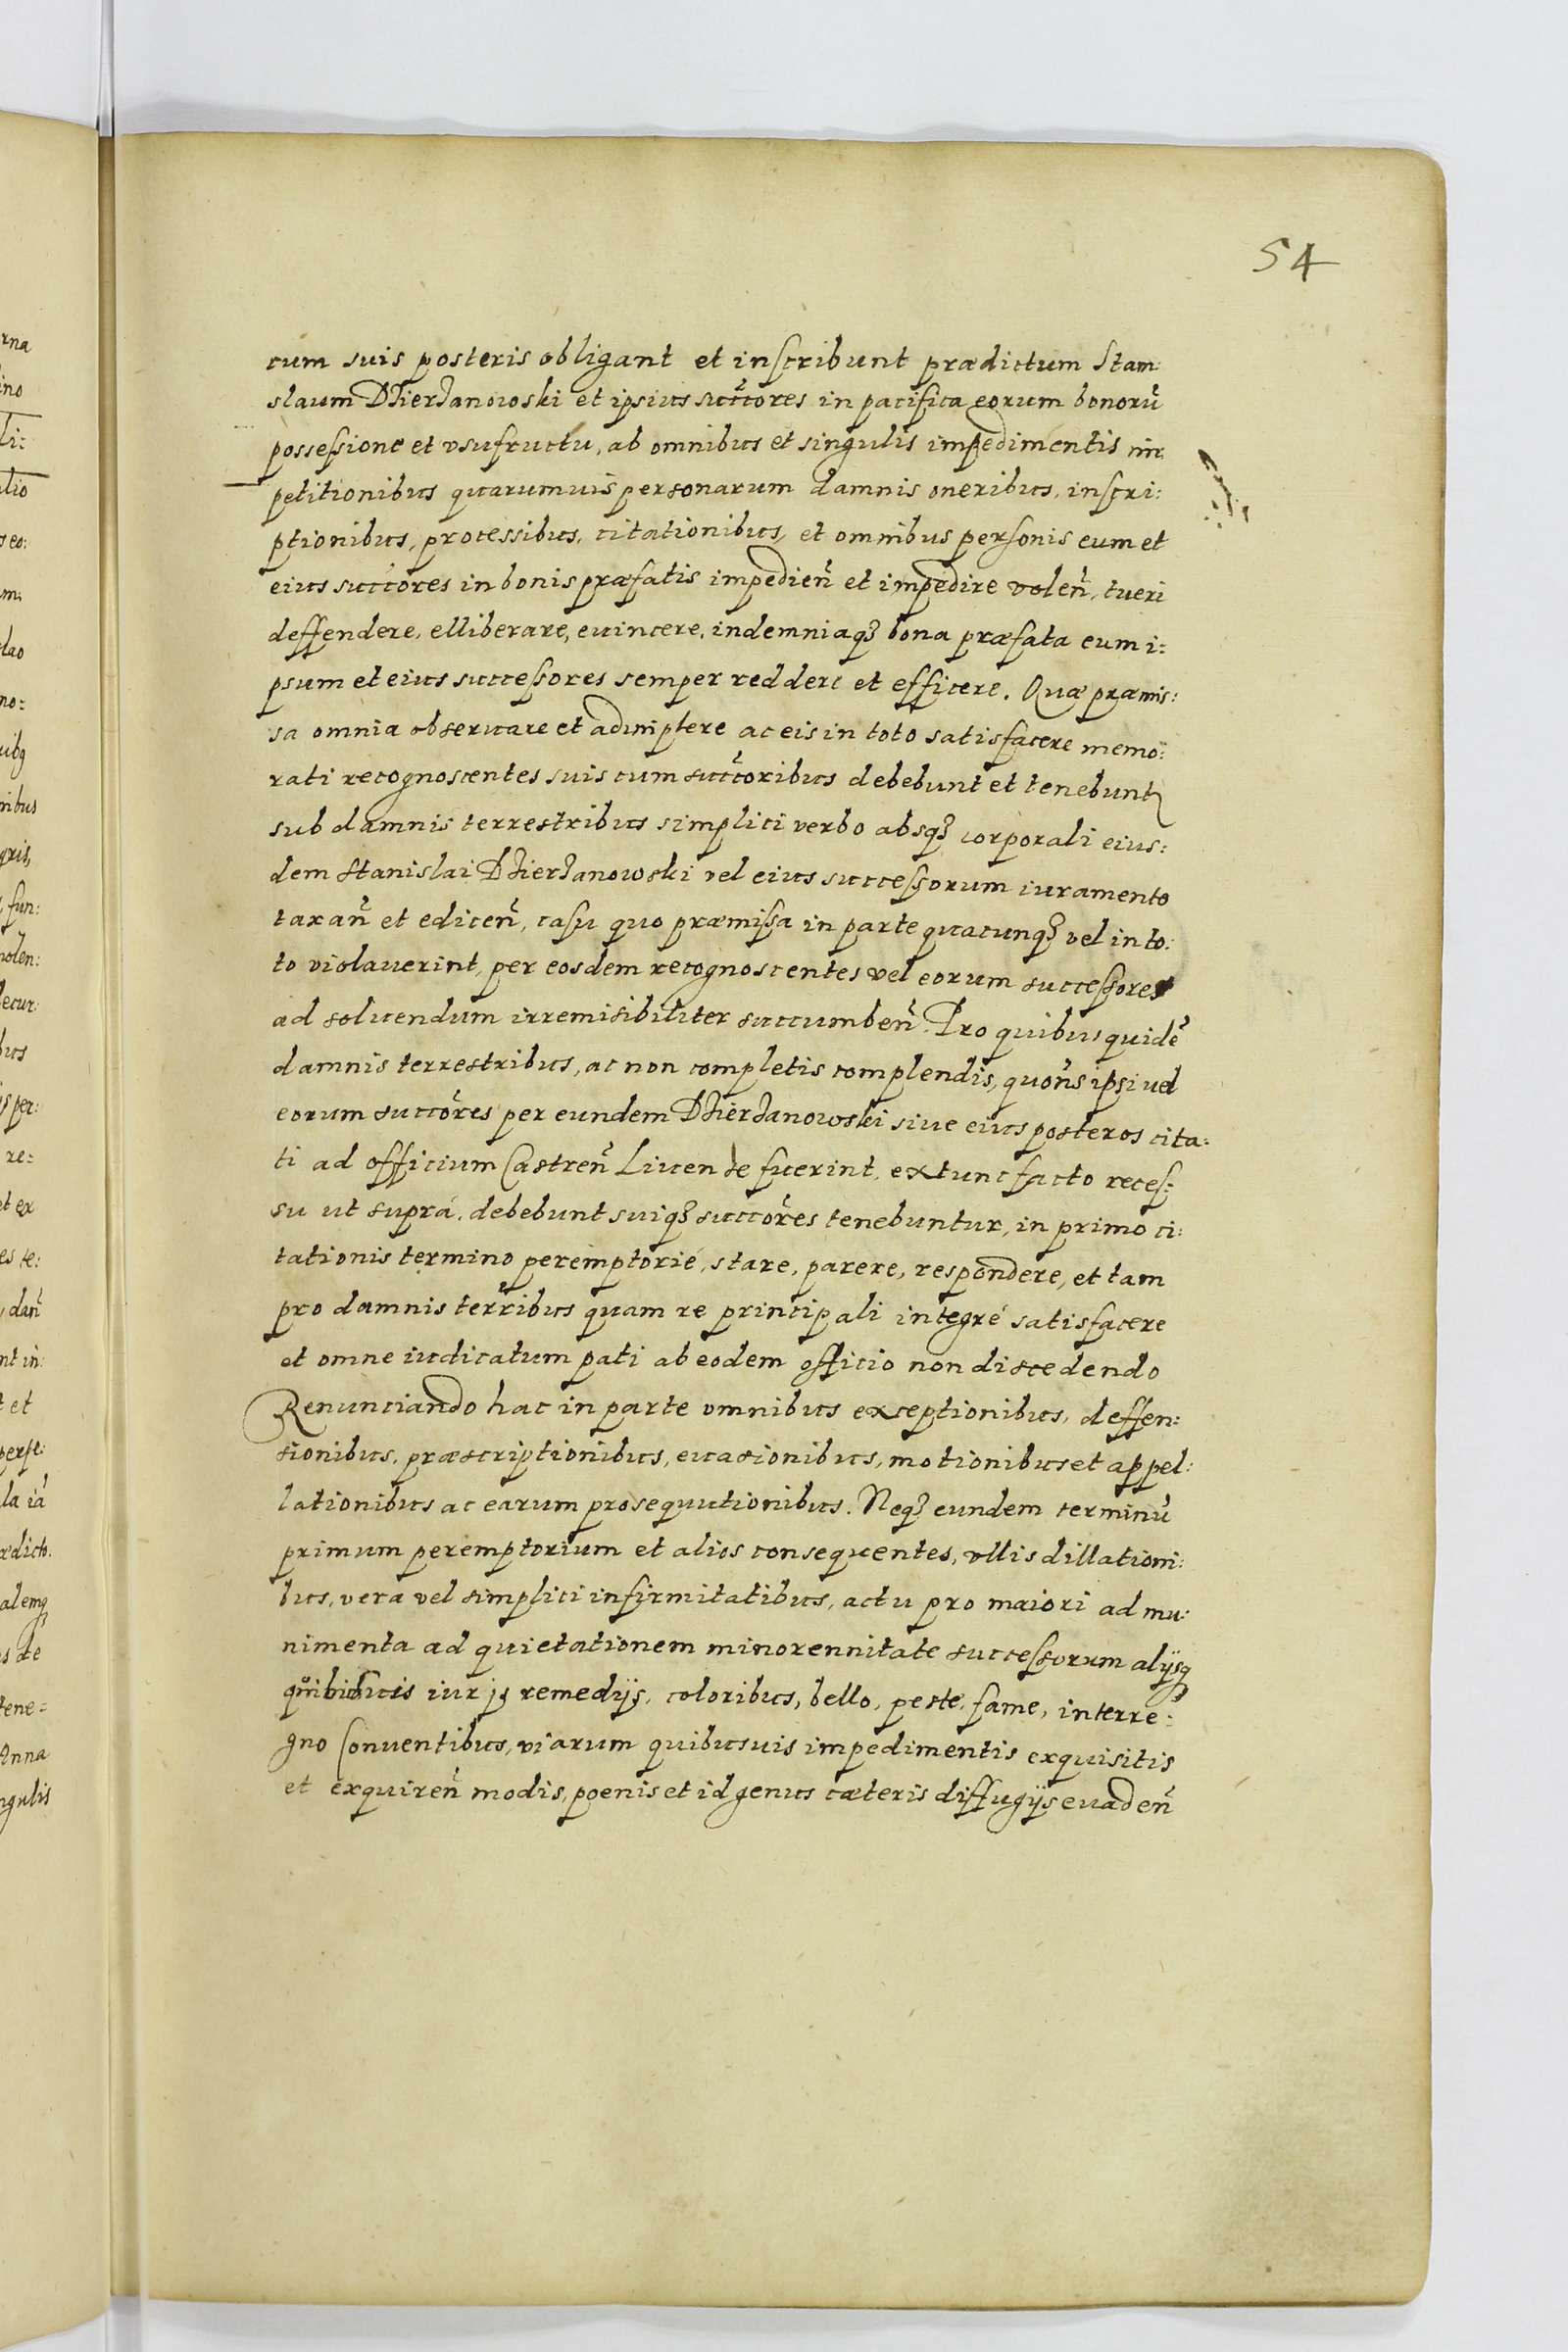 54
cum suis posteris obligant et inscribunt prædictum Stani:
slaum Dzierzanowski et ipsius succ̃ores in pacifica eorum bonorũ
possessione et vsufructu, ab omnibus et singulis impedimentis im:
petitionibus quarumuis personarum damnis oneribus, inscri:
ptionibus, processibus, citationibus, et omnibus personis eum et
eius succ̃ores in bonis præfatis impedien̄ et impedire volen̄, tueri
deffendere, elliberare, euincere, indemniaqȝ bona præfata eum i:
psum et eius successores semper reddere et efficere. Quæ præmis:
sa omnia obseruare et adimplere ac eis in toto satisfacere memo:
rati recognoscentes suis cum succ̃oribus debebunt et tenebunt̃
sub damnis terrestribus simplici verbo absqȝ corporali eius:
dem Stanislai Dzierzanowski vel eius successorum iuramento
taxan̄ et edicen̄, casu quo præmissa in parte quacunqȝ vel in to:
to violauerint, per eosdem recognoscentes vel eorum successores
ad soluendum irremisibiliter succumben̄. Pro quibus quidẽ
damnis terrestribus, ac non completis complendis, quon̄s ipsi vel
eorum succ̃ores per eundem Dzierzanowski siue eius posteros cita:
ti ad officium Castren̄ Liuen de fuerint, extunc facto reces:
su ut suprá, debebunt suiqȝ succ̃ores tenebuntur, in primo ci:
tationis termino peremptorié, stare, parere, respondere, et tam
pro damnis terr̃ribus quam re principali integré satisfacere
et omne iudicatum pati ab eodem officio non discedendo
Renunciando hac in parte omnibus exceptionibus, deffen:
sionibus, præscriptionibus, euasionibus, motionibus et appel:
lationibus ac earum prosequutionibus. Neqȝ eundem terminũ
primum peremptorium et alios consequentes, vllis dillationi:
bus, vera vel simplici infirmitatibus, actu pro maiori ad mu:
nimenta ad quietationem minorennitate successorum alijsqȝ
iuris remedijs, coloribus, bello, peste, fame, interre:
gno Conuentibus, viarum quibusuis impedimentis exquisitis
et exquiren̄ modis, poenis et id genus cæteris diffugijs euaden̄